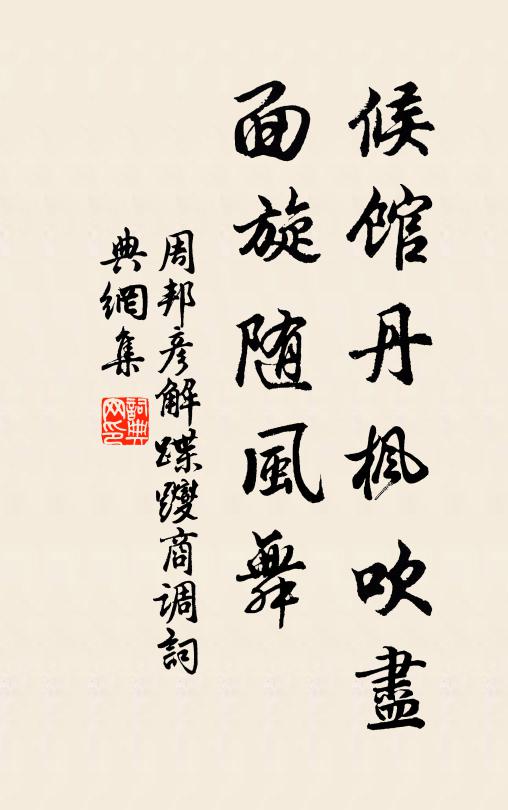 候馆丹枫吹盡
面旋随風舞
周邦彦解蹀躞商调詞
典網集
詞典網印